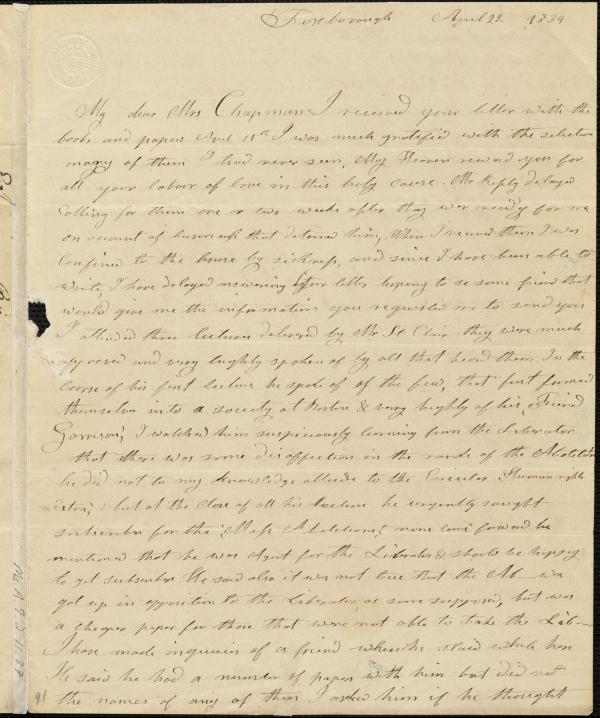 Foxborough April 22 1839
My dear Mrs Chapman I received your letter with the
books and papers April 11th I was much gratified with the selection
many of them I had never seen. May Heaven reward you for
all your labour of love in this holy cause. Mr Reply delayed
Calling for them one or two weeks after they were ready for me
on account of business that detained him, When I received them I was
Confined to the house by sickness, and since I have been able to
write I have delayed answering your letter hoping to se some friend that
would give me the information you requested me to send you
I attended three lectures delivered by Mr St Clair they were much
approved and very highly spoken of by all that heard them. In the
Course of his first lecture he spoke of of the few, that first formed
themselves into a society at Boston & very highly of his Friend
Garrison, I watched him suspiciously learning from the Liberator
that there was some disaffection in the ranks of the Abolition
he did not to my knowledge allude to the Circular Human rights
extra, but at the Close of all his lectures he urgently sought
subscribers for the Mass Abolitionist, none came forward he
mentioned that he was Agent for the Liberator & should be happy
to get subscribers He said also it was not true that the Ab— was
got up in opposition to the Liberator as some supposed, but was
a cheaper paper for those that were not able to take the Lib—
I have made inquiries of a friend where he staid while here
He said he had a number of papers with him but did not
the names of any of them I asked him if he thought
91